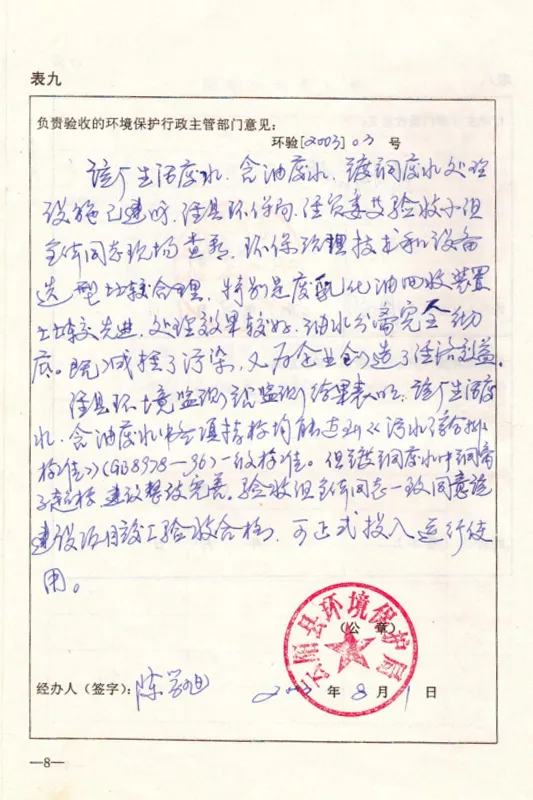 表九
负责验收的环境保护行政主管部门意见：
环验[2003]03号
该厂生活废水、含油废水、镀铜废水处理
设施已建成，经县环保局、经贸委及验收小组
全体同志现场查看，环保治理技术和设备
选型比较合理，特别是废乳化油回收装置
比较先进，处理效果较好，油水分离完全彻
底。既减轻了污染，又为企业创造了经济效益。
经县环境监测站监测结果表明：该厂生活废
水、含油废水中各项指标均能达到《污水综合排
标准》(GB8978—96)一级标准。但镀铜废水中铜离
子超标，建议整改完善。验收组全体同志一致同意该
建设项目竣工验收合格，可正式投入运行使
用。
县环境保护局
(公章)
经办人（签字）：陈
2003年8月1日
—8—